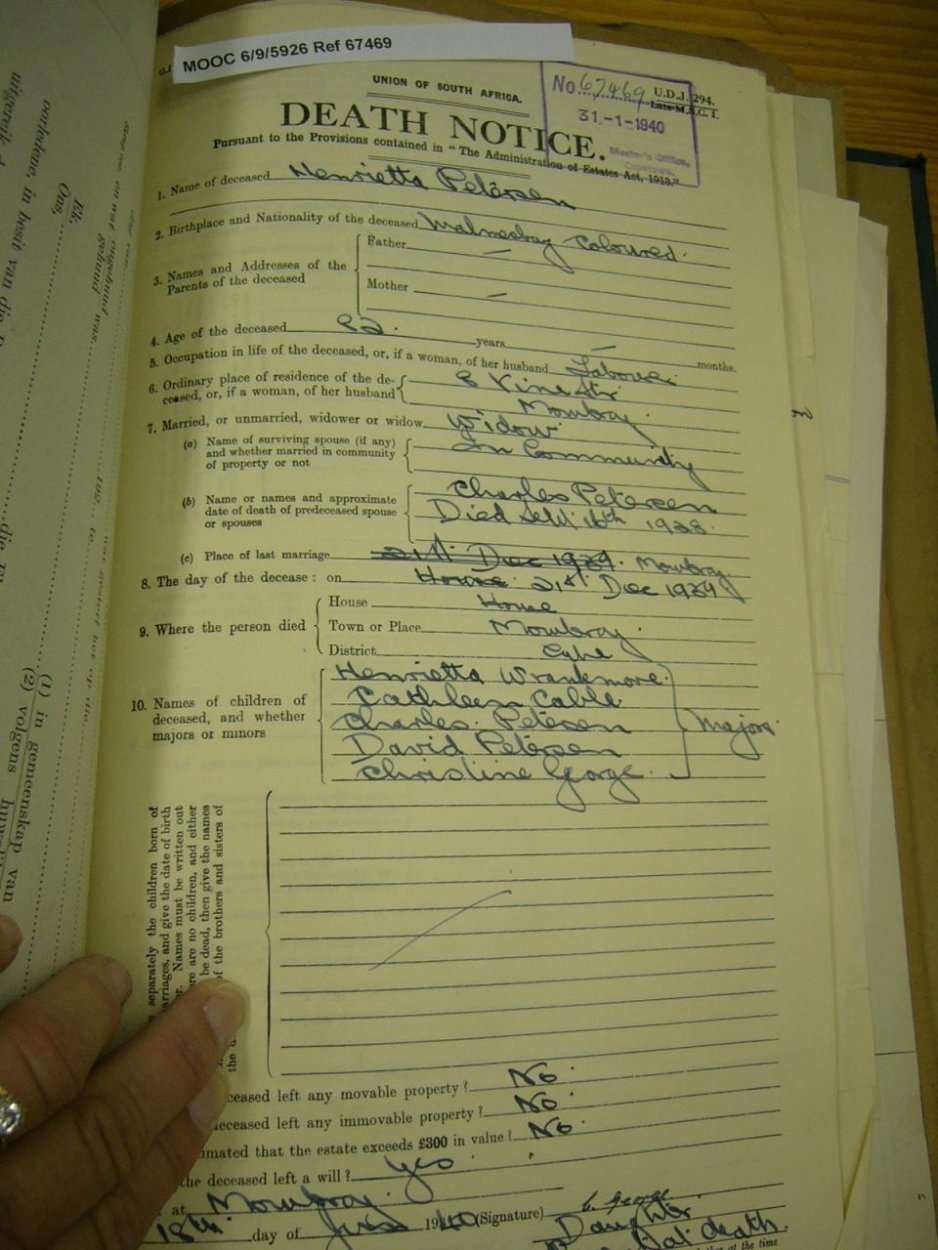 MOOC 6/9/5926 Ref 67469
UNION OF SOUTH AFRICA.
No 67469 U.D.J. 294.
31-1-1940
Master's Office,
DEATH NOTICE.
Pursuant to the Provisions contained in "The Administration of Estates Act, 1913."
1. Name of deceased Henrietta Petersen
2. Birthplace and Nationality of the deceased Malmesbury Coloured.
3. Names and Addresses of the Parents of the deceased
Father —
Mother —
4. Age of the deceased 82. years — months.
5. Occupation in life of the deceased, or, if a woman, of her husband Labourer
6. Ordinary place of residence of the deceased, or, if a woman, of her husband
8 Vine Str
Mowbray.
7. Married, or unmarried, widower or widow Widow.
(a) Name of surviving spouse (if any) and whether married in community of property or not
In Community
(b) Name or names and approximate date of death of predeceased spouse or spouses
Charles Petersen
Died Sept. 16th 1938.
(c) Place of last marriage 21st. Dec 1939. Mowbray
8. The day of the decease: on House. 21st Dec 1939
9. Where the person died
House House
Town or Place Mowbray.
District Cape
10. Names of children of deceased, and whether majors or minors
Henrietta Wrankmore.
Cathleen Cable
Charles. Petersen
David Petersen
Christine George.
Majors
separately the children born of
arriages, and give the date of birth
r. Names must be written out
ere are no children, and either
be dead, then give the names
of the brothers and sisters of
the d
ceased left any movable property? No.
deceased left any immovable property? No.
imated that the estate exceeds £300 in value? No
the deceased left a will? Yes
at Mowbray.
18th day of 1940 (Signature) C. George
Daughter
at death.
at the time
(1) in gemeenskap van
(2) volgens